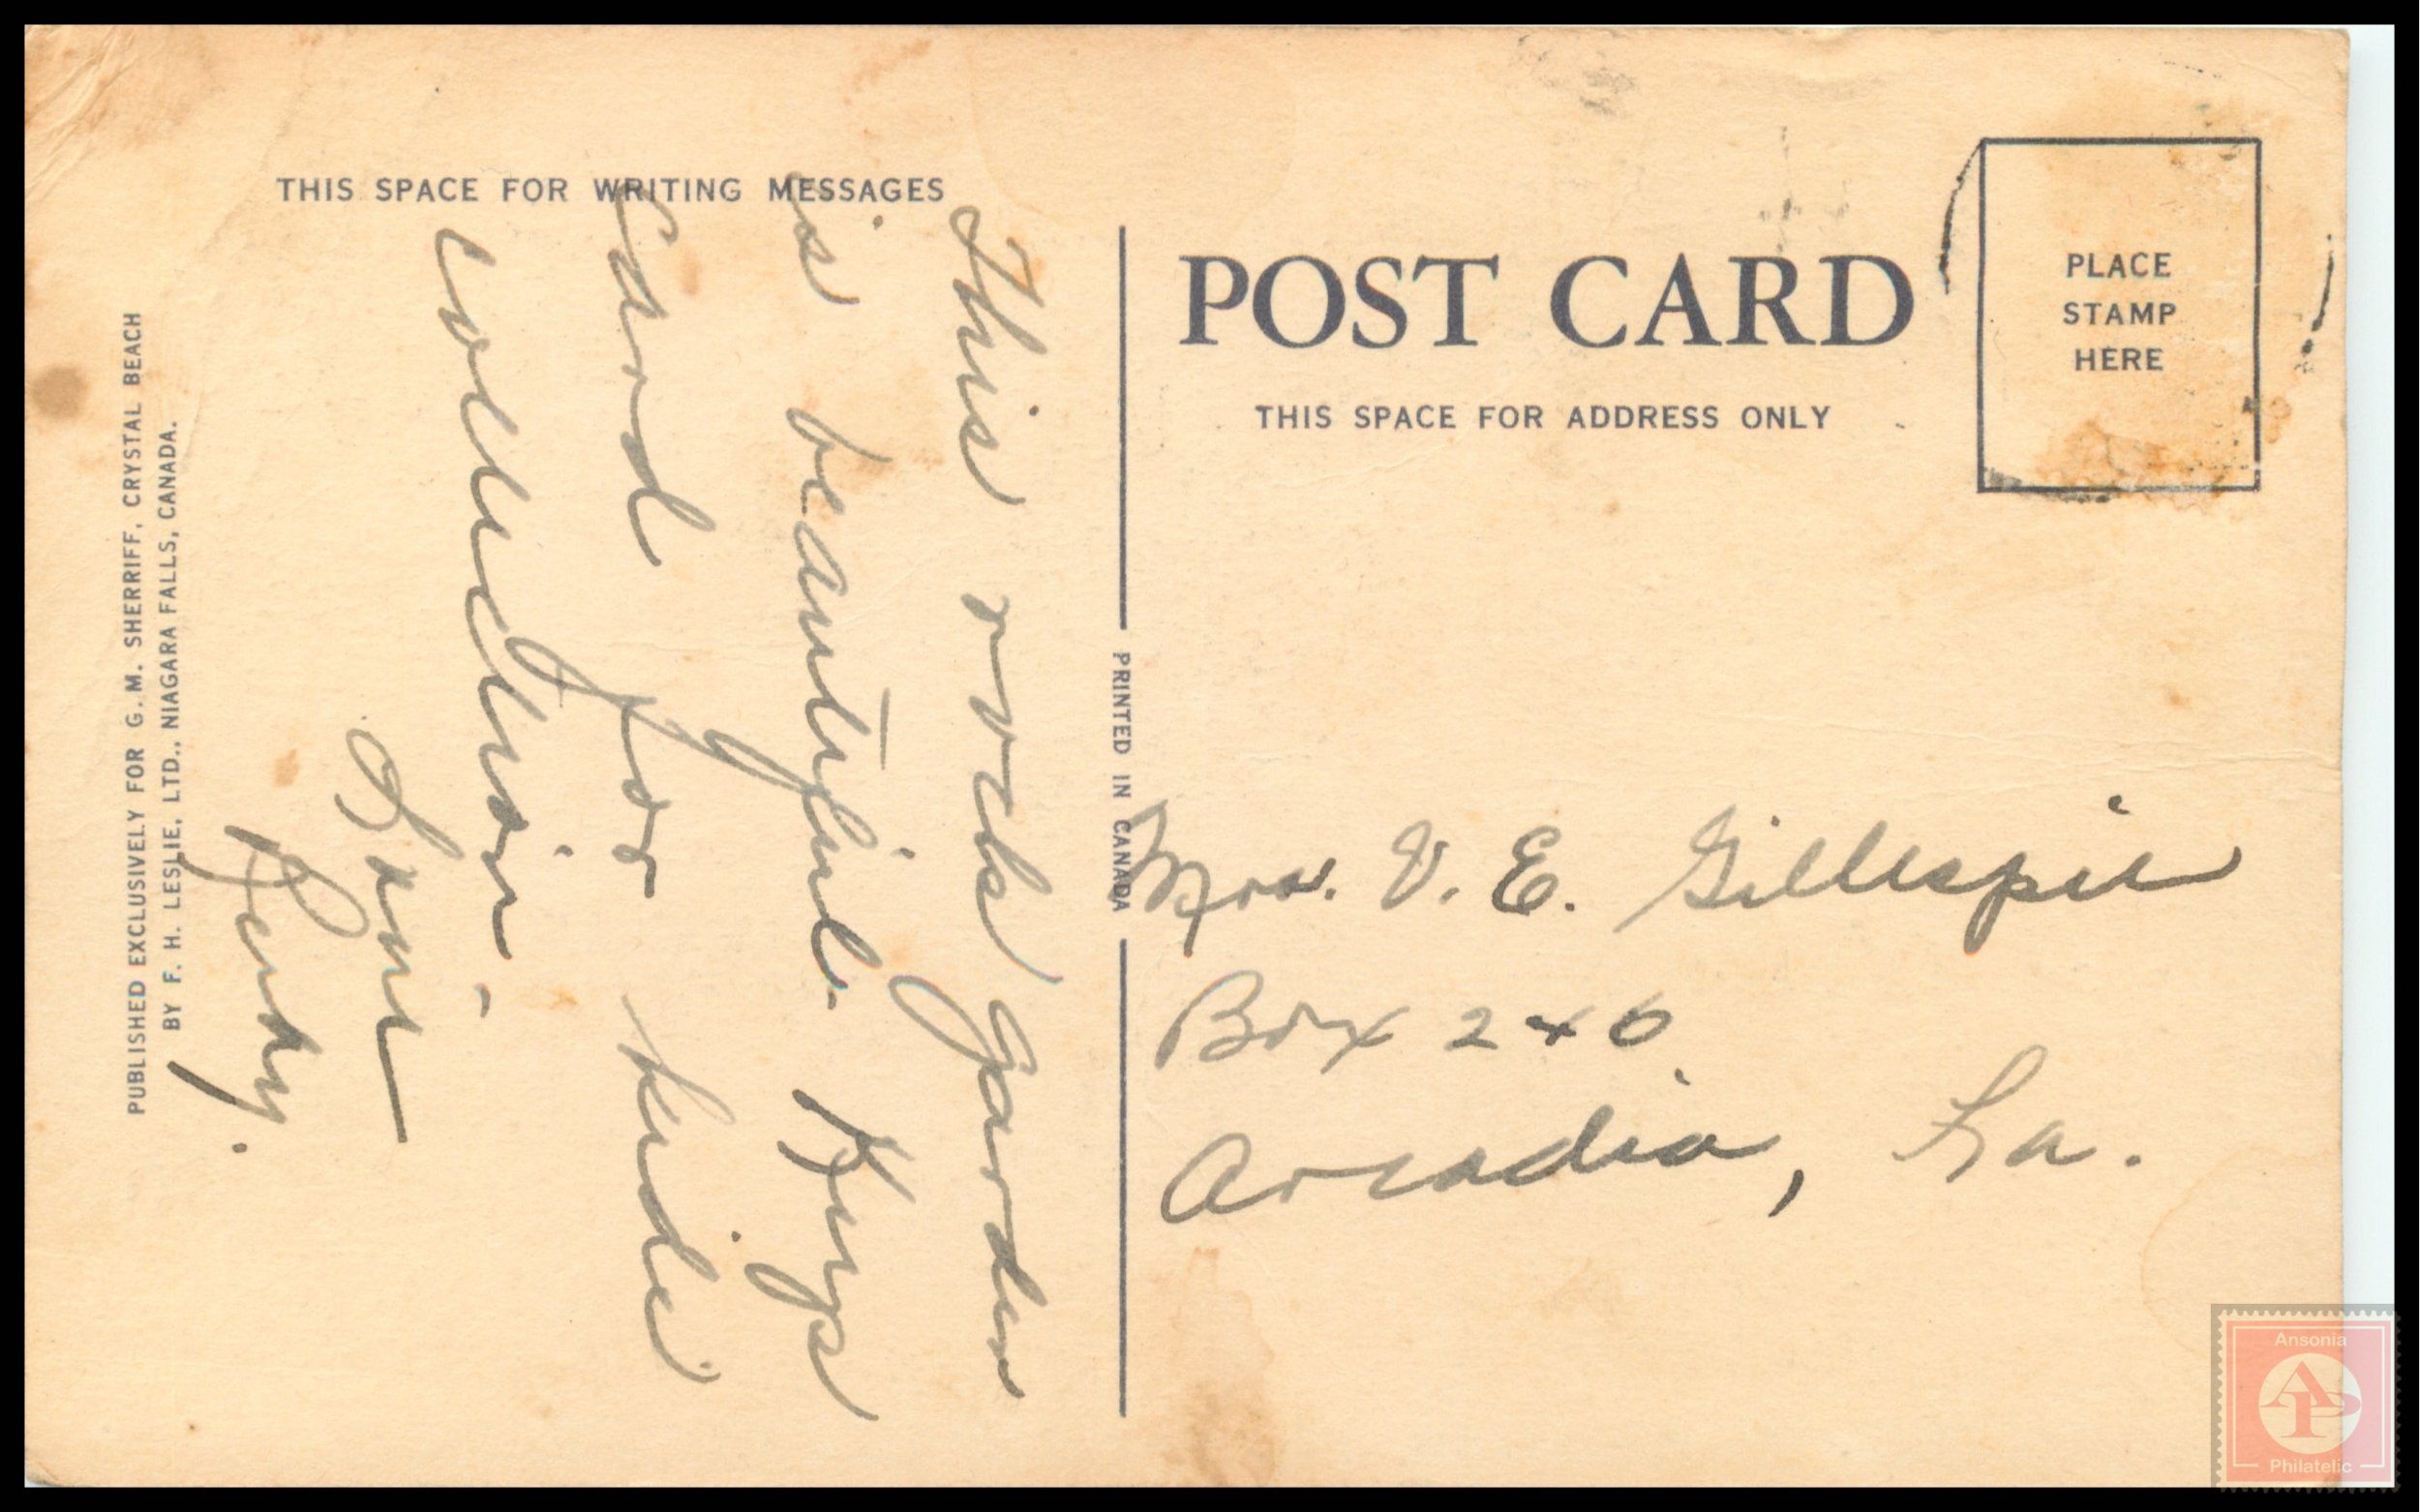 THIS SPACE FOR WRITING MESSAGES
This rock garden
is beautiful. Keep
Card for kids
collection.
Love
Rudy.
PUBLISHED EXCLUSIVELY FOR G. M. SHERRIFF, CRYSTAL BEACH
BY F. H. LESLIE, LTD., NIAGARA FALLS, CANADA.
PRINTED IN CANADA
POST CARD
THIS SPACE FOR ADDRESS ONLY
PLACE
STAMP
HERE
Mrs. V. E. Gillespie
Box 246
Arcadia, La.
Ansonia
APS
Philatelic